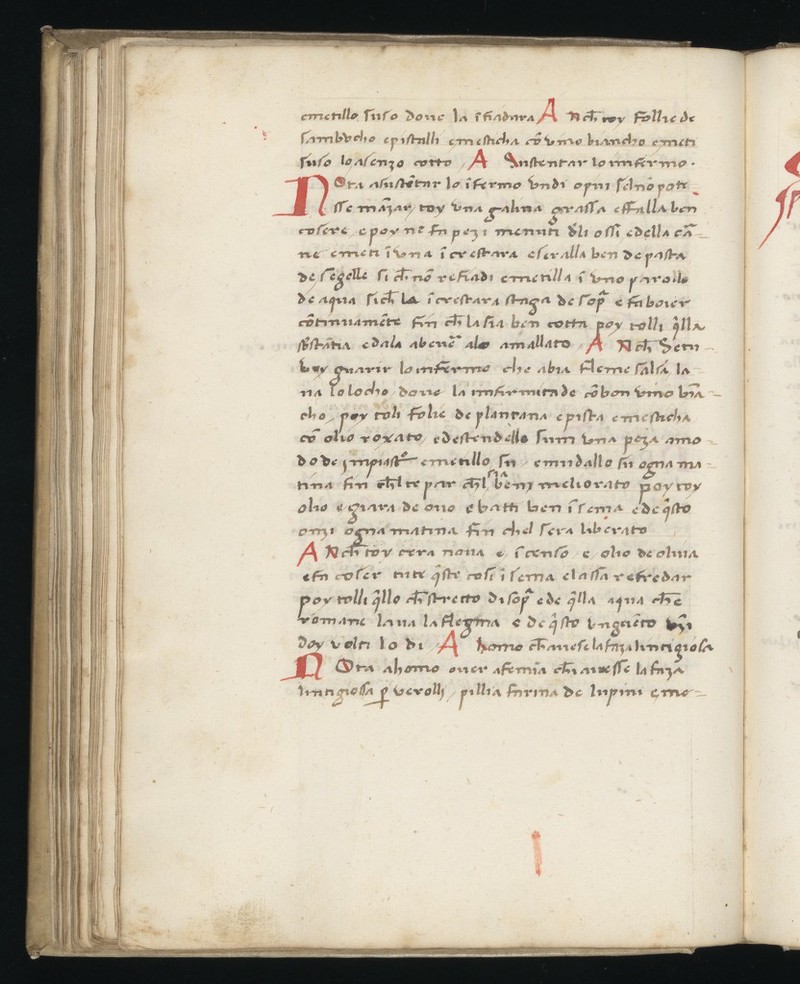 emetillo suso doue la ĩfiadura A Nch̃ toy follie de
sambucho epistalli emesticha cõ vino biancho emeti
suso lo asenzo cotto A Sustentar lo infermo.
NOta asustẽtar lo ĩfermo vndi opni selnõ pote
sse mãzar, toy vna galina grassa effalla ben
cosere, epoy ne fa pezi menuti dli ossi edella cã=
ne emeti ĩ vna ĩcrestara eseralla ben de pasta
de segelle si ch̃ nõ refiadi emetilla ĩ vno parollo
de aqua sich̃ la ĩcrestara staga de sopr̃ e fa boier
cõtinuamẽte fin ch̃ la sia ben cotta poy tolli q̃lla
sb̃stãtia edala abeuer̃ alo amallato A Nch̃ Setu
voy guarir lo infermo che abia fleme salsa la=
ua lo locho doue la infirmitade cõ bon vino biã=
cho, poy toli folie de plantana epista emesticha
cõ olio roxato, edestendello sum vna peza amo=
do de impiastr̃ emetillo su, emudallo su ogna ma=
tina fin ch̃l te par ch̃l sia beni meliorato poy toy
olio e giara de ouo ebatti ben ĩsema ede q̃sto
onzi ogna matina fin chel sera liberato
ANch̃ toy cera noua e, ĩcenso e, olio de oliua
efa coser tute q̃ste cosi ĩsema elassa refredar
poy tolli q̃llo ch̃ stretto di sopr̃ ede q̃lla aqua ch̃ e
romane laua la flegma e de q̃sto vnguẽto vzi
doy volti lo di A homo ch̃ auese la faza lintigiosa
NOta ahomo ouer afemĩa ch̃i auesse la faza
lintigiossa p̱ verolli, pillia farina de lupini eme=